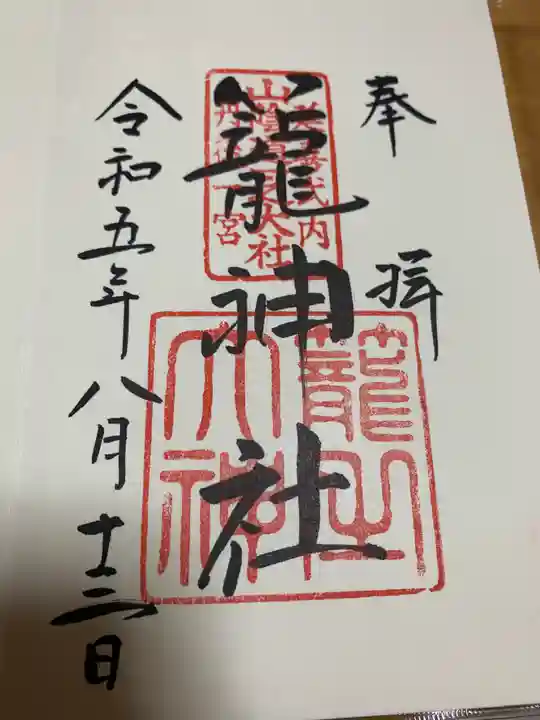 奉拝
延喜式内
山陰大社
丹後一宮
籠神社
籠之
大神
令和五年八月十三日